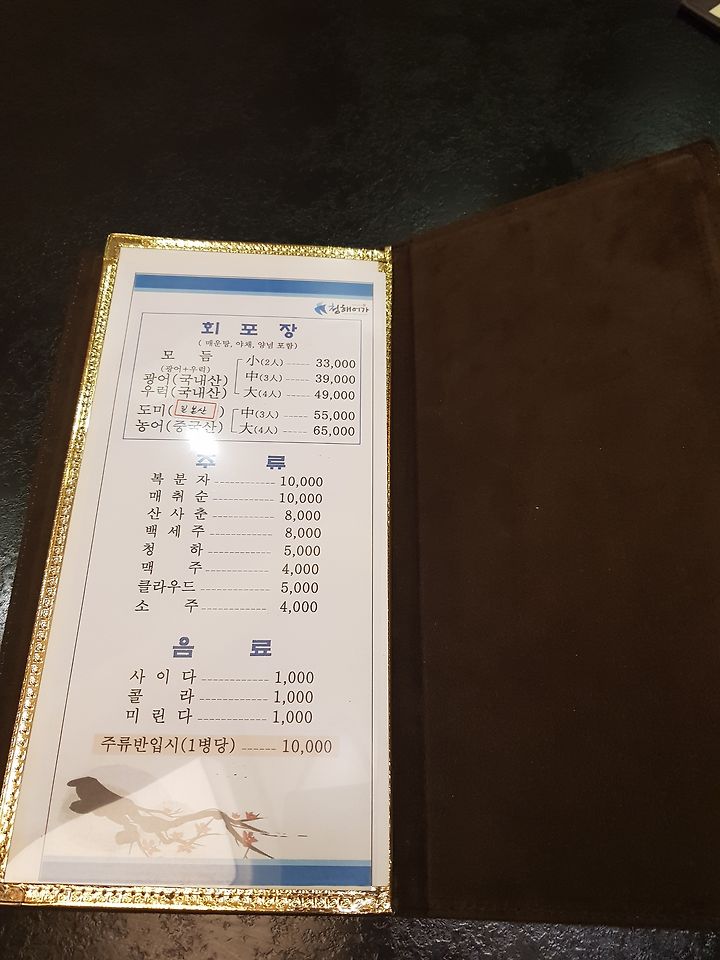 청해어가
회 포 장
( 매운탕, 야채, 양념 포함)
모 듬 小(2人) ----- 33,000
(광어+우럭)
광어(국내산) 中(3人) ----- 39,000
우럭(국내산) 大(4人) ----- 49,000
도미(일본산) 中(3人) ----- 55,000
농어(중국산) 大(4人) ----- 65,000
주 류
복 분 자 ------------ 10,000
매 취 순 ------------ 10,000
산 사 춘 ------------ 8,000
백 세 주 ------------ 8,000
청 하 ------------ 5,000
맥 주 ------------ 4,000
클라우드 ------------ 5,000
소 주 ------------ 4,000
음 료
사 이 다 ------------ 1,000
콜 라 ------------ 1,000
미 린 다 ------------ 1,000
주류반입시(1병당) ------ 10,000